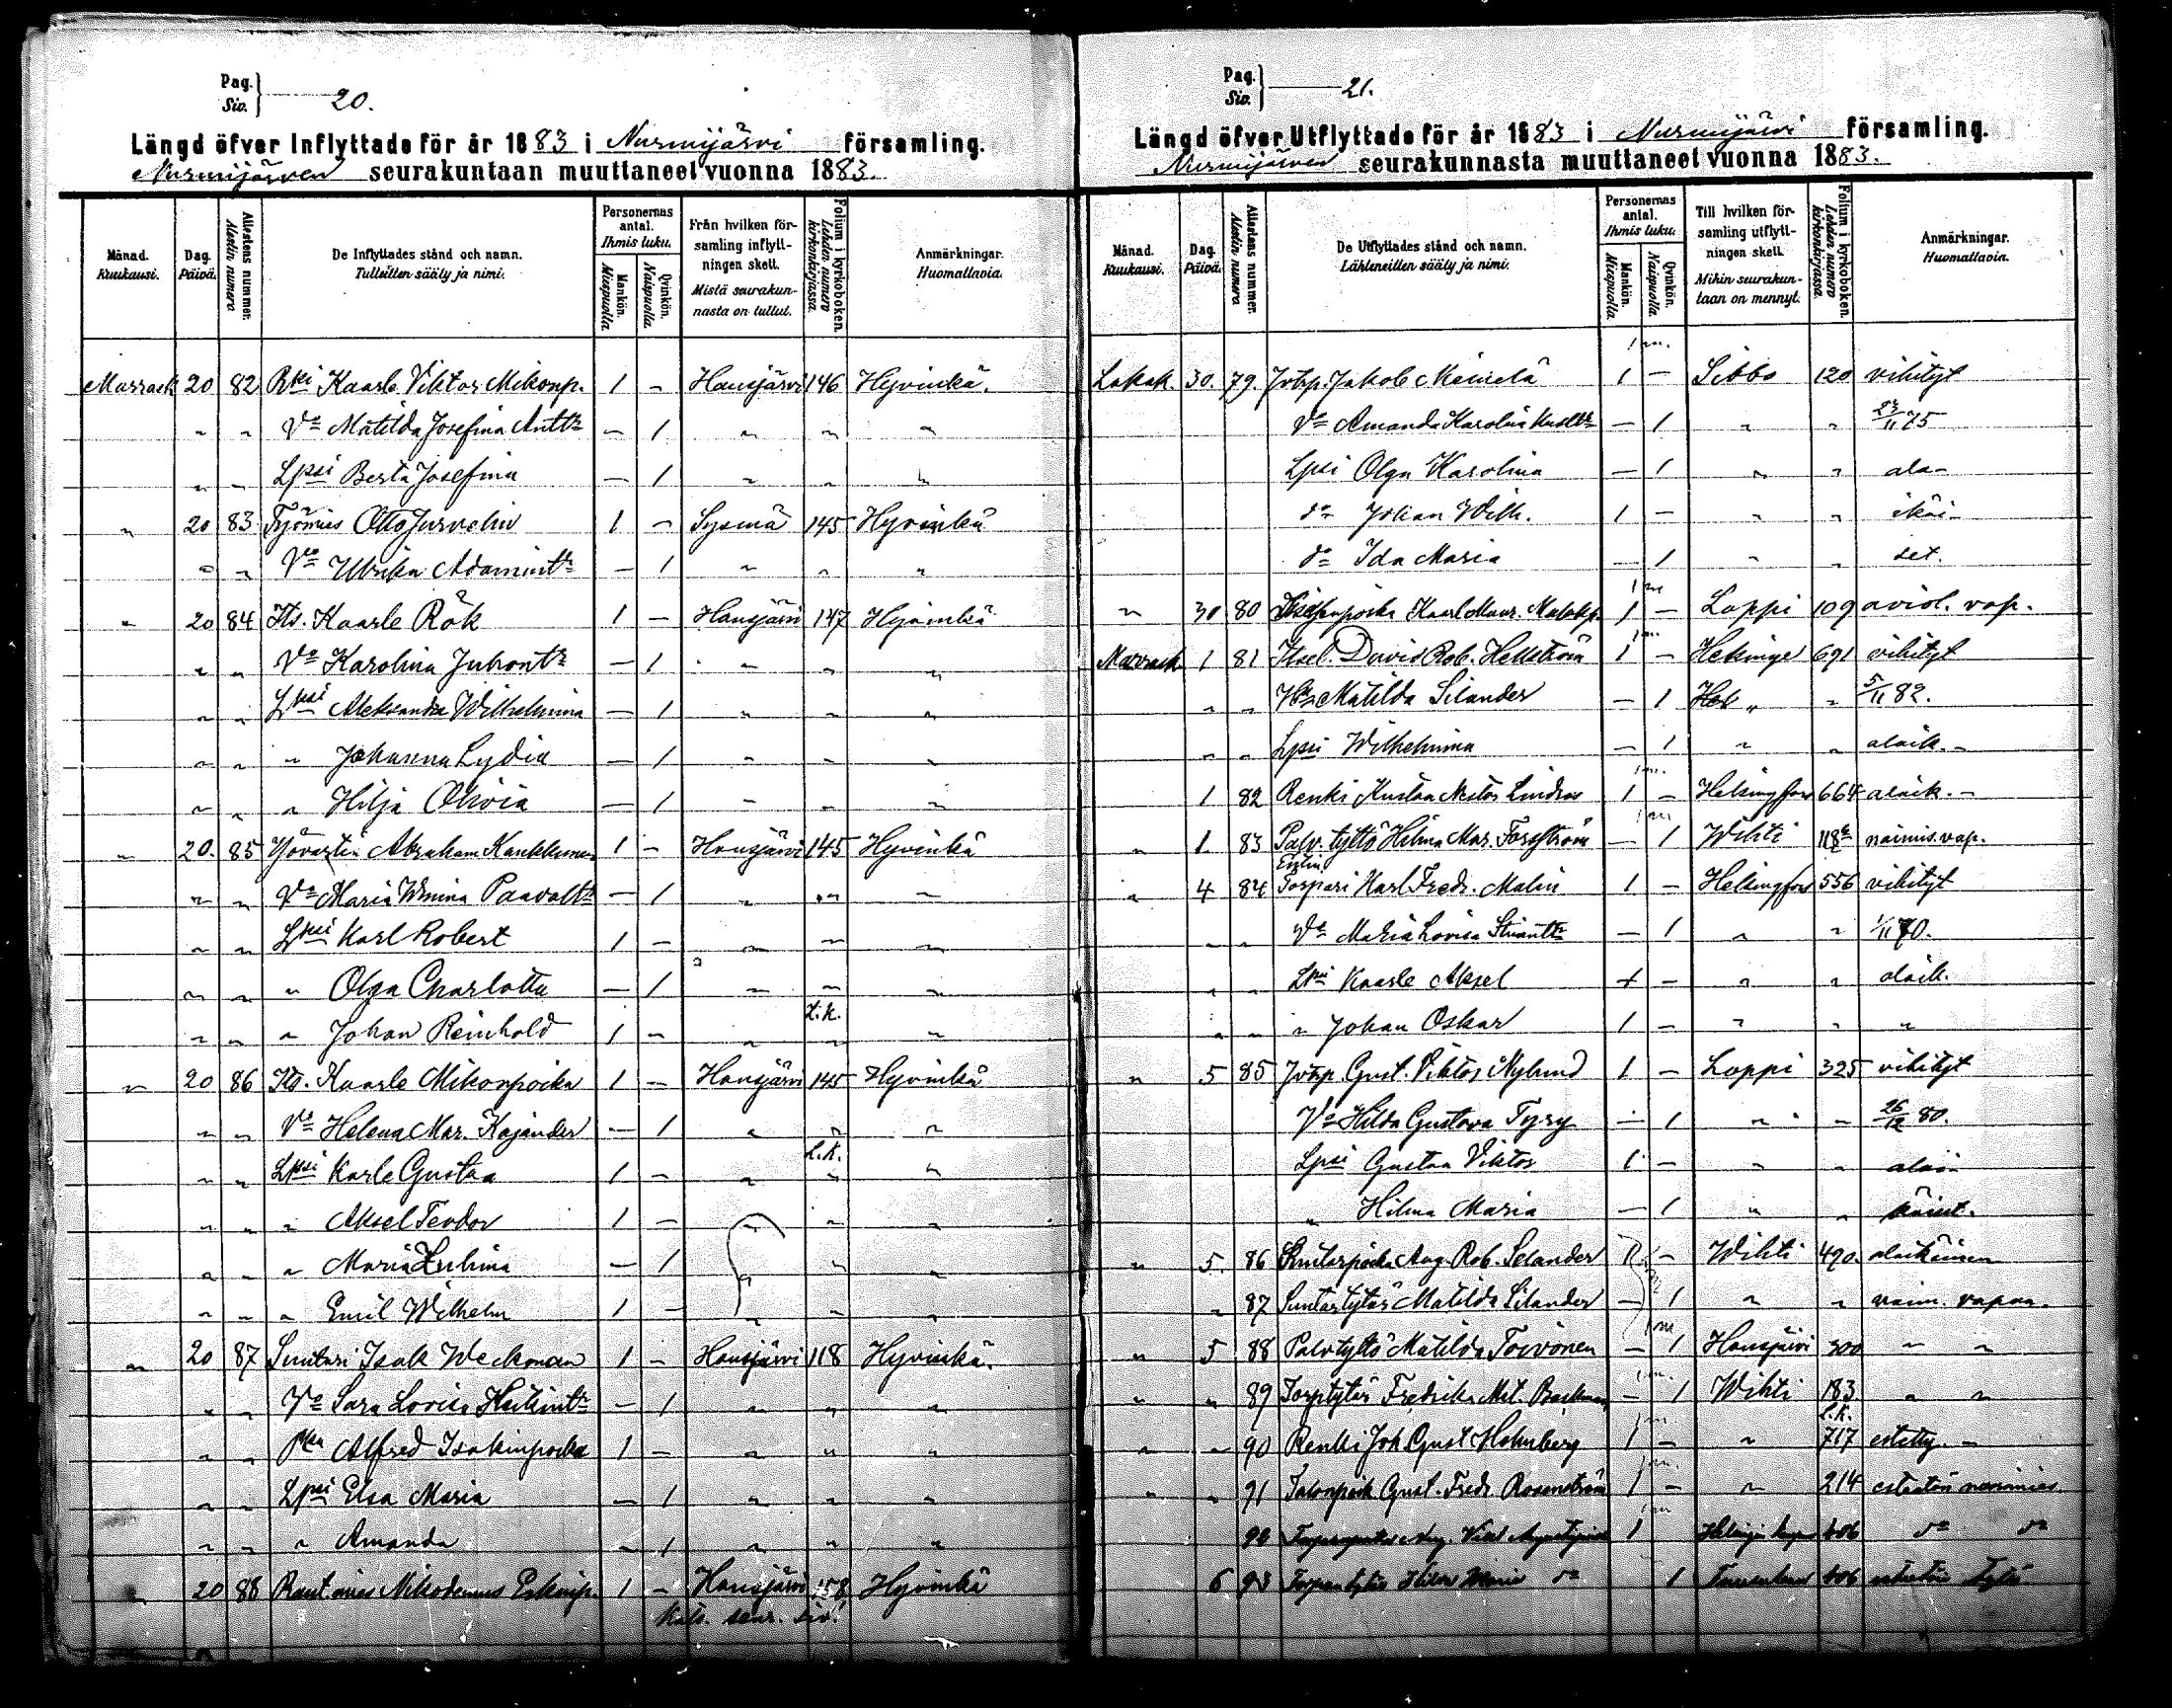 Pag.
Siv. 20.
Längd öfver Inflyttade för år 1883 i Nurmijärvi församling.
Nurmijärven seurakuntaan muuttaneet vuonna 1883.
Månad. Kuukausi. Dag. Päivä. Attestens nummer. Alestin numero De Inflyttades stånd och namn. Tulleitten sääty ja nimi. Personernas antal. Ihmis luku. Mankön. Miespuolia. Qvinkön. Naispuolia. Från hvilken församling inflyttningen skett. Mistä seurakunnasta on tullut. Folium i kyrkoboken. Lehden numero kirkonkirjassa. Anmärkningar. Huomattavia.
Marrask 20 82 Rki Kaarle Viktor Mikonp. 1 - Hausjärvi 146 Hyvinkä.
" " Vo Matilda Josefina Anttr - 1 " " "
" " Lpsi Berta Josefina - 1 " " "
" 20 83 Työmies Otto Jurvelin 1 - Sysmä 145 Hyvinkä
" " Vo Ulrika Adamintr - 1 " " "
" 20 84 Its. Kaarle Rök 1 - Hausjärvi 147 Hyvinkä
" " Vo Karolina Juhontr - 1 " " "
" " Lpsi Aleksandra Wilhelmina - 1 " " "
" " " Johanna Lydia - 1 " " "
" " " Hilja Olivia - 1 " " "
" 20. 85 Abraham 1 - Hausjärvi 145 Hyvinkä
" " Vo Maria Wmina Paavaltr - 1 " " "
" " Lpsi Karl Robert 1 - " " "
" " " Olga Charlotta - 1 " " "
L.k.
" " " Johan Reinhold 1 - " " "
" 20 86 Its. Kaarle Mikonpoika 1 - Hausjärvi 145 Hyvinkä
" " Vo Helena Mar. Kajander - 1 " " "
L.K.
" " Lpsi Karle Gustaa 1 - " " "
" " " Aksel Teodor 1 - " " "
" " " Maria - 1 " " "
" " " Emil Wilhelm 1 - " " "
" 20 87 Suutari Isak Weckman 1 - Hausjärvi 118 Hyvinkä.
" " Vo Sara Lovisa - 1 " " "
" " Pka Alfred Isakinpoika 1 - " " "
" " Lpsi Elsa Maria - 1 " " "
" " " Amanda - 1 " " "
" 20 88 Raut.mies Nikodemus 1 - Hausjärvi 158 Hyvinkä
Kats. seur. siv!
Pag.
Siv. 21.
Längd öfver Utflyttade för år 1883 i Nurmijärvi församling.
Nurmijärven seurakunnasta muuttaneet vuonna 1883.
Månad. Kuukausi. Dag. Päivä. Attestens nummer. Alestin numero De Utflyttades stånd och namn. Lähteneitten sääty ja nimi. Personernas antal. Ihmis luku. Mankön. Miespuolia. Qvinkön. Naispuolia. Till hvilken församling utflyttningen skett. Mihin seurakuntaan on mennyt. Folium i kyrkoboken. Lehden numero kirkonkirjassa. Anmärkningar. Huomattavia.
1 m.
Lokak. 30. 79. Jakob 1 - Sibbo 120 vihityt
Vo Amanda Karolina - 1 " " 11 75
Lpsi Olga Karolina - 1 " " ala-
do Johan Wilh. 1 - " " ikäi-
do Ida Maria - 1 " " set.
1 m
" 30 80 Kaarl 1 - Loppi 109 aviol. vap.
1 m
Marrask 1 81 Itsel. David Rob. Hellström 1 - Helsinge 691 vihityt
" " Matilda Silander - 1 " " 5/11 82.
" " Lpsi Wilhelmina - 1 " " alaik.-
1 m.
1 82 Renki Kustaa Nestor Lindroos 1 - Helsingfors 664 alaik.-
1 m
" 1 83 Palv. tyttö Hilma Mar. Forsström - 1 Wihti 118 naimis.vap.
Entin.
" 4 84 Torpari Karl Fredr. Malin 1 - Helsingfors 556 vihityt
" " Vo Maria Lovisa - 1 " " 1/11 70.
" " Lpsi Kaarle Aksel + - " " alaik.
" " " Johan Oskar 1 - " " "
" 5 85 Gust. Viktor Nylund 1 - Loppi 325 vihityt
Vo Hilda Gustava Tyry - 1 " " 26/12 80.
Lpsi Gustaa Viktor 1 - " " alaä-
" Hilma Maria - 1 " "
" 5. 86 Aug. Rob. Selander - Wihti 490. alaikäinen
" 87 Suutartytär Matilda Silander - 1 " " naim. vapaa.
1 m
" 5 88 Palvtyttö Matilda Toivonen - 1 Hausjärvi 300 " "
1 m.
" " 89 Torptytär Fredrika Mat. Backman - 1 Wihti 183 " "
L.K.
1 m
" " 90 Renki Joh Gust Holmberg 1 - " 717 estetty.-
1 m.
" " 91 Talonpoik Gust. Fredr. Rosenström 1 - " 214 esteetön naimies
1 m
92 1 606 do do
6 93 Hilda Maria do 1 606 esteetön tytö